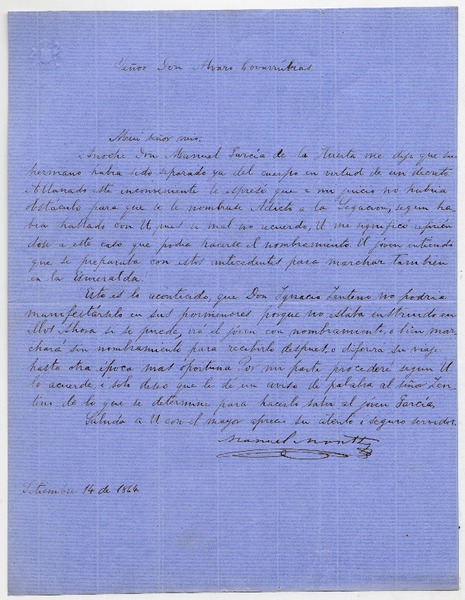 Señor Don Alvaro Covarrubias
Mui señor mio.
Anoche Don Manuel García de la Huerta me dijo que su
hermano habia sido separado ya del cuerpo en virtud de un decreto
Allanado este inconveniente le espresó que a mi juicio no habria
obstáculo para que se le nombrase Adicto a la Legacion, segun ha
bia hablado con U. pues si mal no acuerdo, U. me significó refirién
dose a este caso que podia hacerse el nombramiento. El jóven entiendo
que se preparaba con estos antecedentes para marchar tambien
en la Esmeralda.
Esto es lo acontecido, que Don Ignacio Zenteno no podria
manifestárselo en sus pormenores, porque no estaba instruido en
ellos. Ahora si se puede, irá el jóven con nombramiento, o bien mar
chará sin nombramiento para recibirlo despues, o diferirá su viaje
hasta otra época mas oportuna. Por mi parte procederé segun U.
lo acuerde, i solo deseo que le dé un aviso de palabra al señor Zen
teno de lo que se determine para hacerlo saber al jóven García.
Saluda a U con el mayor aprecio su atento i seguro servidor.
Manuel Montt
Setiembre 14 de 1864